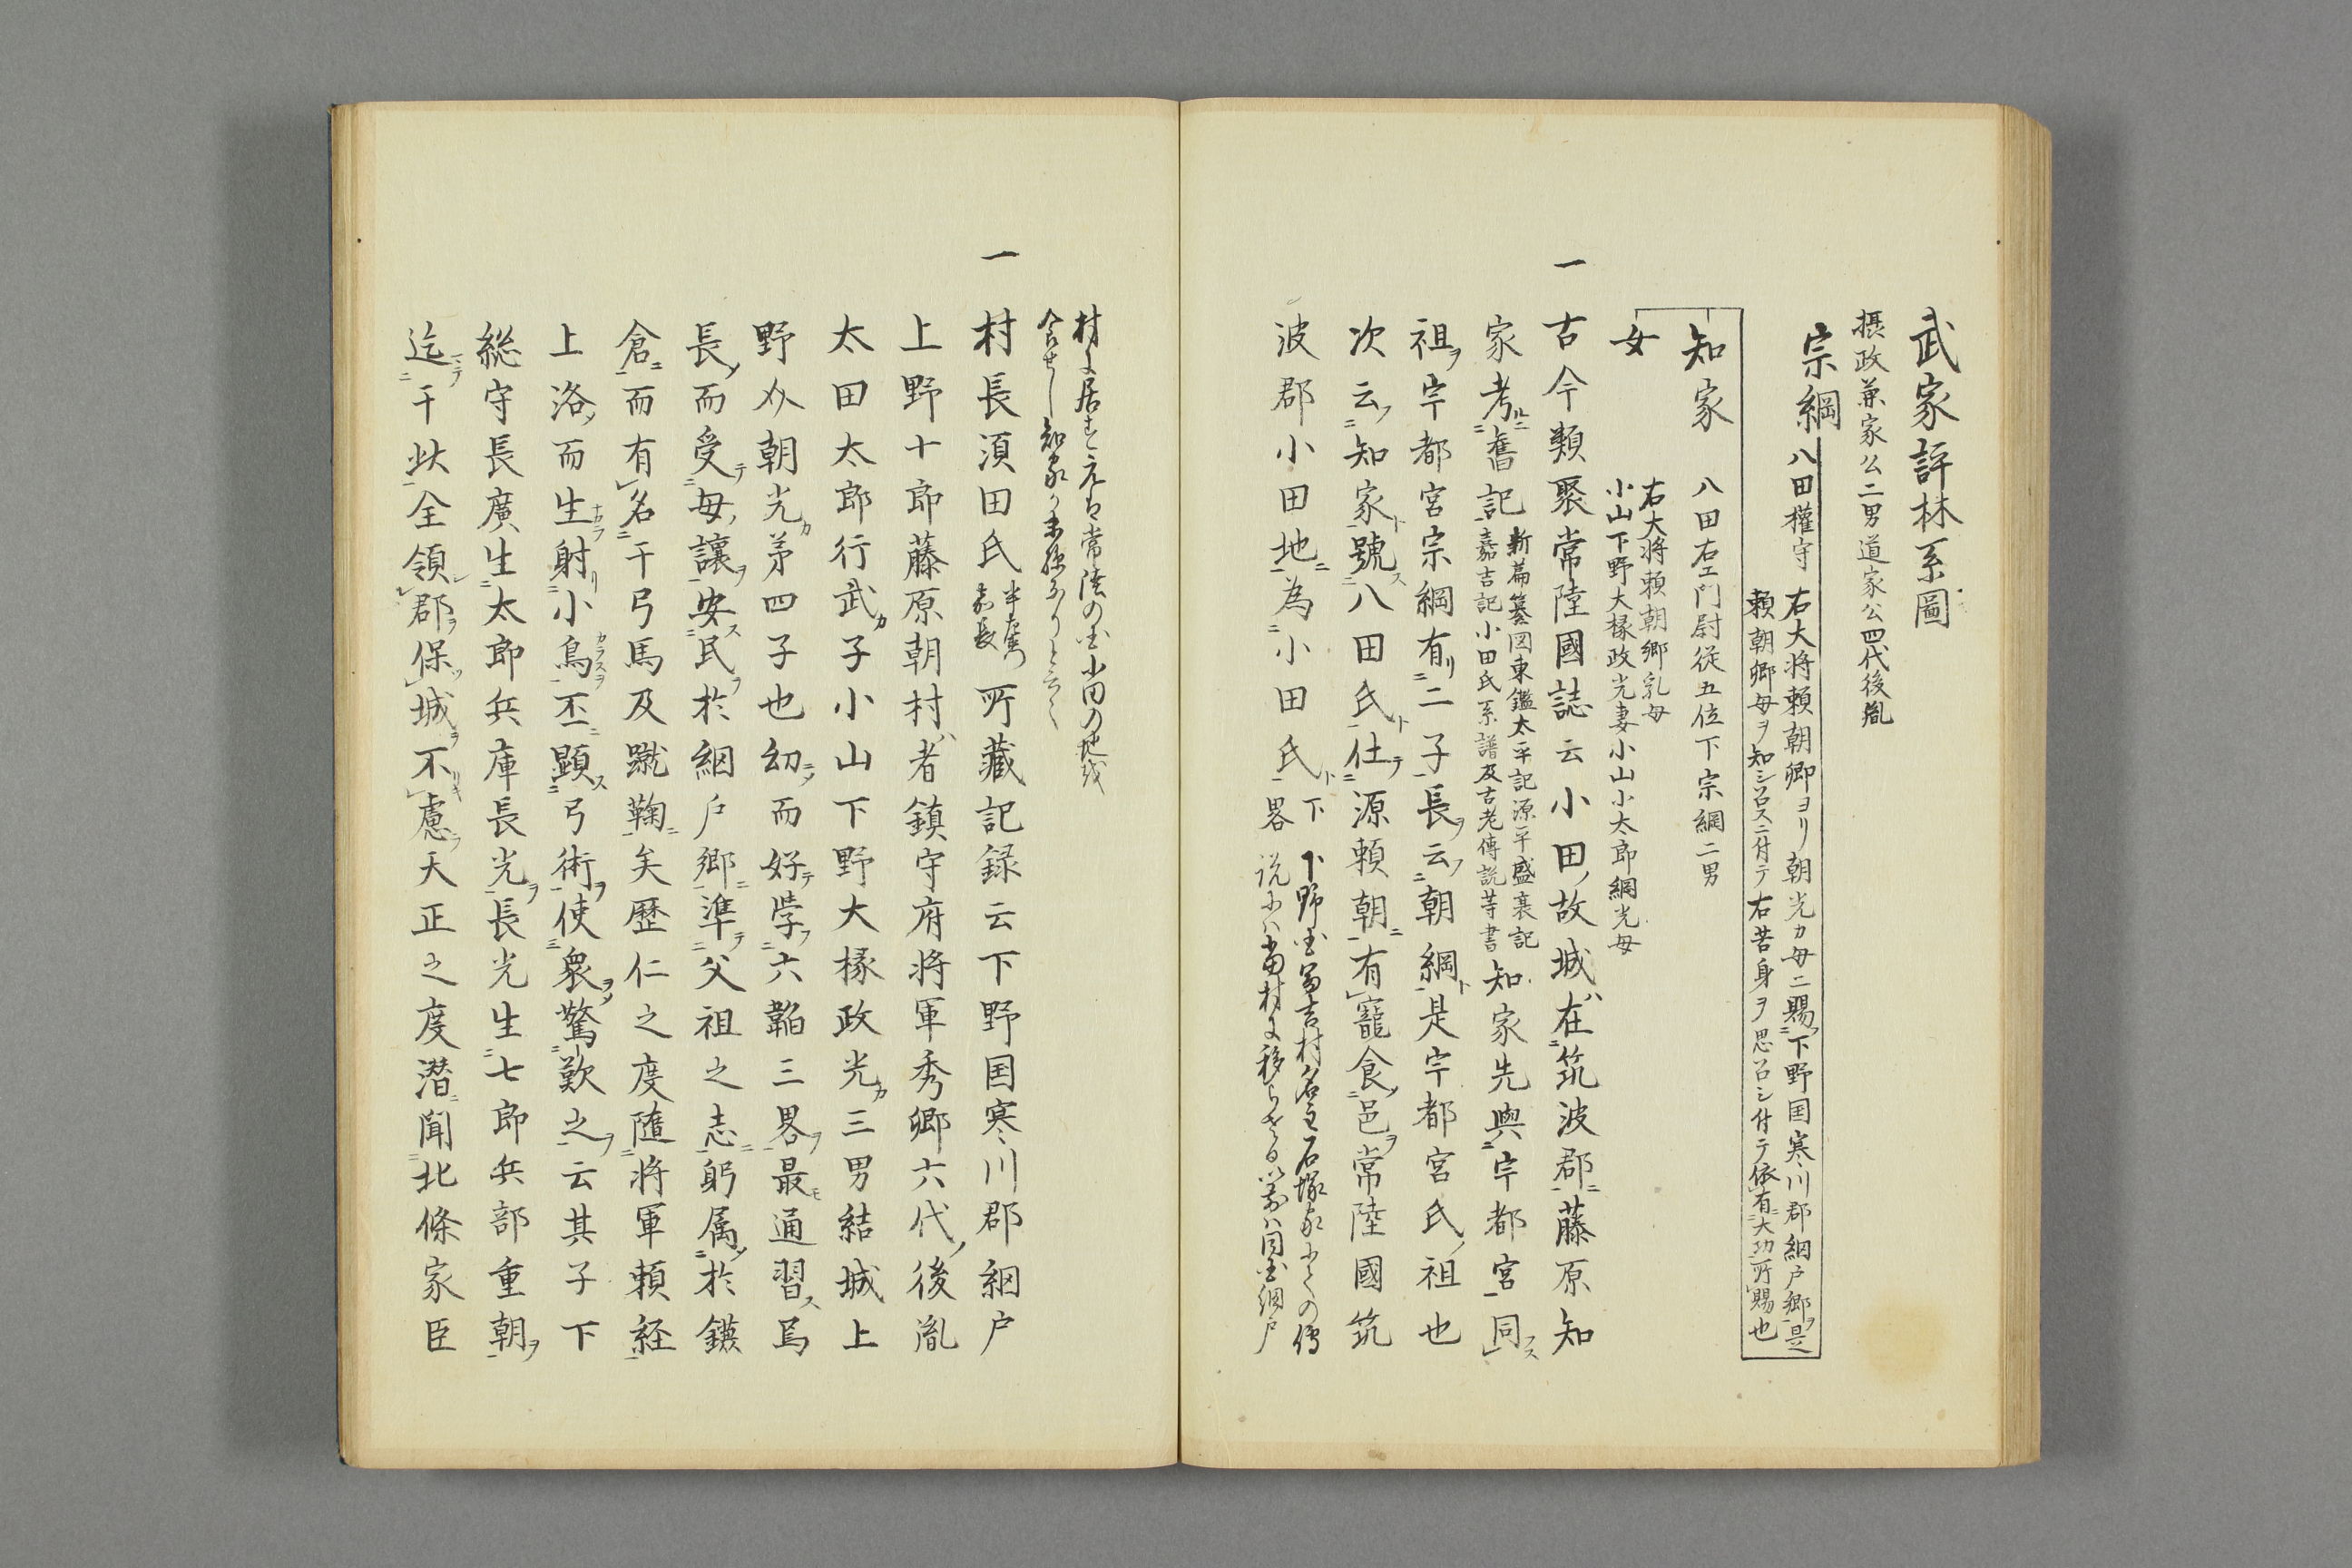 武家評林系圖
摂政兼家公二男道家公四代後胤
宗綱 八田權守 右大将頼朝卿ヨリ朝光カ母ニ賜下野国寒川郡網戸郷ヲ是
頼朝卿母ヲ知シ召スニ付テ右苦身ヲ思召シ付テ依有大功所賜也
知家 八田右エ門尉従五位下宗綱二男
女 右大将頼朝卿乳母
小山下野大掾政光妻小山小太郎網光母
一 古今類聚常陸國誌云小田ノ故城ハ在筑波郡ニ藤原知
家考ルニ舊記 新篇纂図東鑑太平記源平盛衰記
嘉吉記小田氏系譜及古老傳説等書 知家先與宇都宮同スフ
祖ヲ宇都宮宗綱有リ二子長ヲ云フ朝綱ト是宇都宮氏ノ祖也
次云フ知家ト號ス八田氏ト仕テ源頼朝ニ有寵食ノ邑ヲ常陸國筑
波郡小田地ニ為小田氏ト下畧 下野国
説
村に居を元は常陸の国小田の地
一 村長須田氏 所藏記録云下野国寒川郡網戸
上野十郎藤原朝村ハ者鎮守府将軍秀郷六代ノ後胤
太田太郎行武カ子小山下野大掾政光カ三男結城上
野介朝光カ苐四子也幼ニノ而好テ学フ六韜三畧ヲ最モ通習ス焉
長ノ而受テ母ノ讓ヲ安ス民ヲ於網戸郷ニ準テ父祖之志ニ躬属ノ於鎌
倉ニ而有名干弓馬及蹴鞠ニ矣歴仁之度隨将軍頼経
上洛ノ而生射リ小鳥ヲ丕ニ顕ス弓術ヲ使衆ヲノ驚歎之ヲ云其子下
総守長廣生太郎兵庫長光ヲ長光生七郎兵部重朝ヲ
迄テ干此全領郡ヲ保ツ城ヲ不慮ヲ天正之度潜ニ聞北條家臣